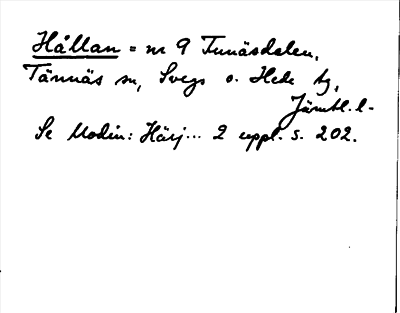 Hållan = nr 9 Funäsdalen,
Tännäs sn, Svegs o. Hede tg,
Jämtl. l.
Se Modin: Härj... 2 uppl. s. 202.